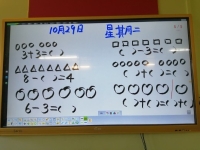 10月29日 星期二
3+3=( )
( )-3=( )
8-( )=4
( )+( )=( )
6-3=( )
( )+( )=( )